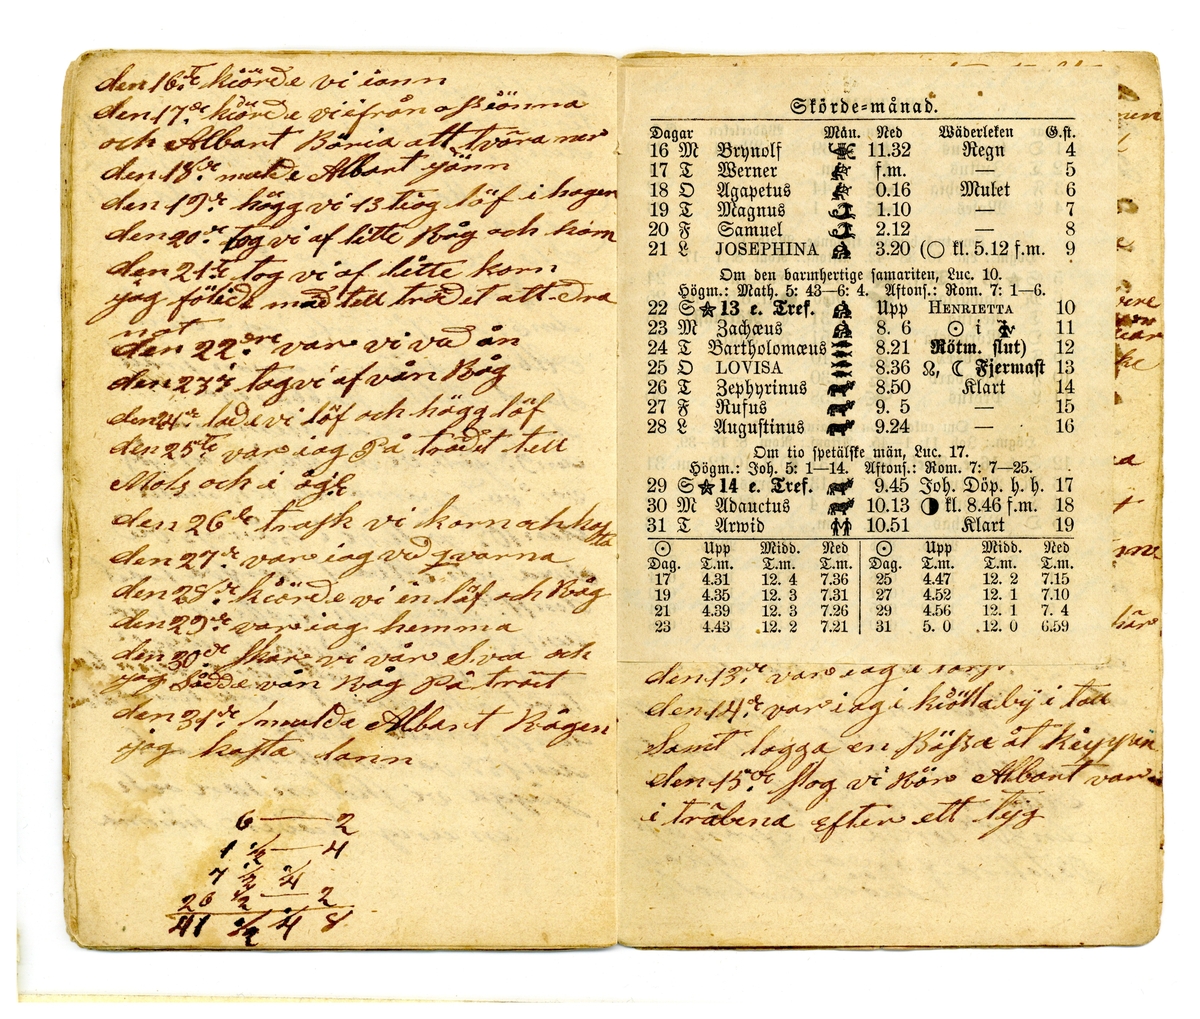 den 16de kiörde vi iann
den 17de kiörde vi ifrån
och Albart Böria att tvära ner
den 18de malde Albart
den 19de högg vi 13 tiog löf i hagen
den 20de tog vi af litte Råg och korn
den 21te tog vi af litte korn
jag följde mad till trädet att dra
not
den 22dre var vi vid ån
den 23je tog vi af vån Råg
den 24de lade vi löf och högg löf
den 25te var iag På trädet till
Mols och i
den 26de trask vi korn och
den 27de var iag vid qvarna
den 28de kiörde vi in löf och Råg
den 29de var iag hemma
den 30de skar vi vår och
jag Sådde vån Råg På träet
den 31de malde Albart Rågen
jag kasta
6 — 2
1 1/2 — 4
7 1/2 1/4
26 1/2 — 2
41 1/2 1/4 8
Skörde=månad.
Dagar Mån. Ned Wäderleken G.st.
16 M Brynolf 11.32 Regn 4
17 T Werner f.m. — 5
18 O Agapetus 0.16 Mulet 6
19 T Magnus 1.10 — 7
20 F Samuel 2.12 — 8
21 L JOSEPHINA 3.20 (○ kl. 5.12 f.m. 9
Om den barmhertige samariten, Luc. 10.
Högm.: Math. 5: 43—6: 4. Aftons.: Rom. 7: 1—6.
22 S 13 e. Tref. Upp HENRIETTA 10
23 M Zachæus 8. 6 ☉ i ♍ 11
24 T Bartholomæus 8.21 Rötm. slut) 12
25 O LOVISA 8.36 ☊, ☾ Fjermast 13
26 T Zephyrinus 8.50 Klart 14
27 F Rufus 9. 5 — 15
28 L Augustinus 9.24 — 16
Om tio spetälske män, Luc. 17.
Högm.: Joh. 5: 1—14. Aftons.: Rom. 7: 7—25.
29 S 14 e. Tref. 9.45 Joh. Döp. h. h. 17
30 M Adauctus 10.13 ◑ kl. 8.46 f.m. 18
31 T Arwid 10.51 Klart 19
☉ Upp Midd. Ned ☉ Upp Midd. Ned
Dag. T.m. T.m. T.m. Dag. T.m. T.m. T.m.
17 4.31 12. 4 7.36 25 4.47 12. 2 7.15
19 4.35 12. 3 7.31 27 4.52 12. 1 7.10
21 4.39 12. 3 7.26 29 4.56 12. 1 7. 4
23 4.43 12. 2 7.21 31 5. 0 12. 0 6.59
den 13de var iag i
den 14de var iag i kiöttaby i
Samt lagga en Bössa åt
den 15de slog vi Rör Albart var
i träbena efter ett tyg